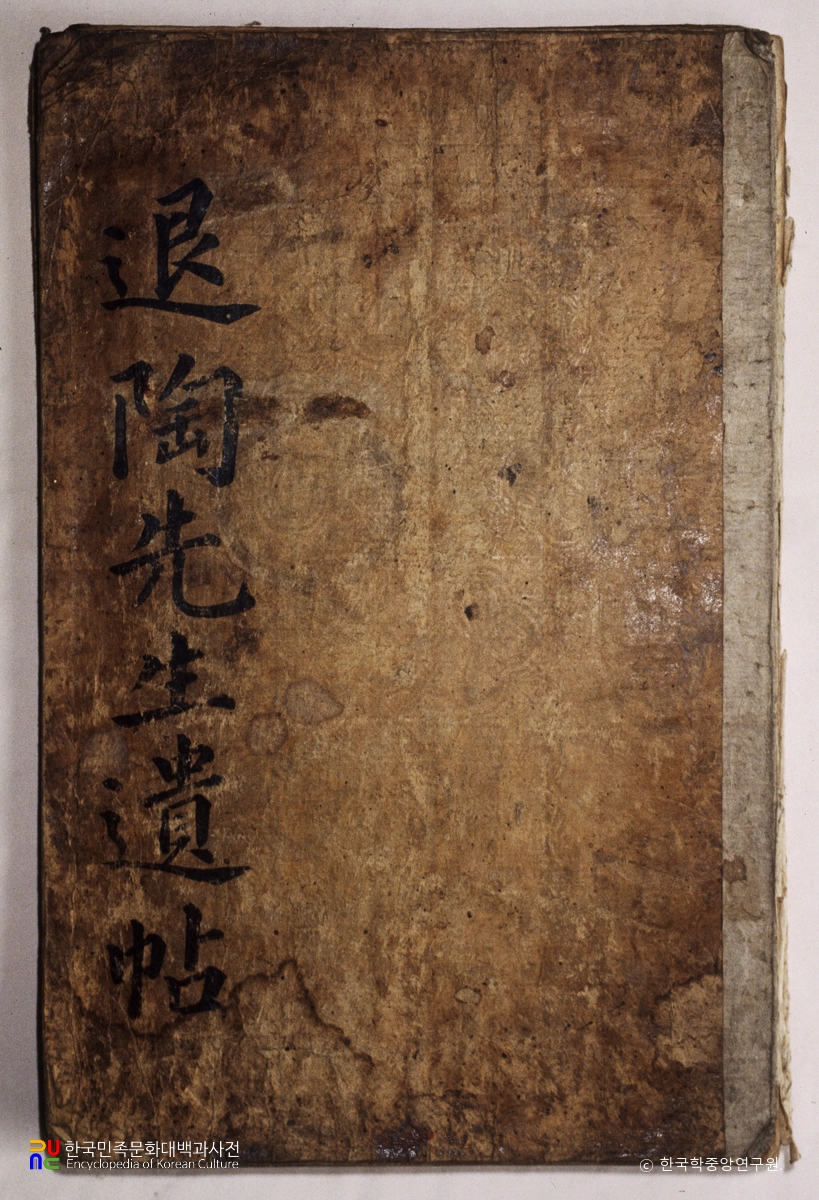 退陶先生遺帖
한국민족문화대백과사전
Encyclopedia of Korean Culture
© 한국학중앙연구원